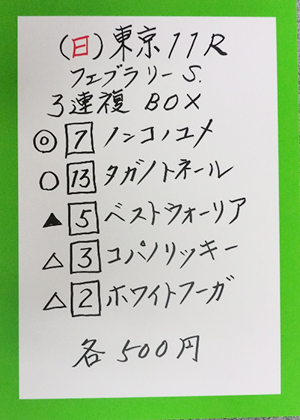 (日)東京11R
フェブラリーS.
3連複 BOX
◎ 7 ノンコノユメ
○ 13 タガノトネール
▲ 5 ベストウォーリア
△ 3 コパノリッキー
△ 2 ホワイトフーガ
各500円